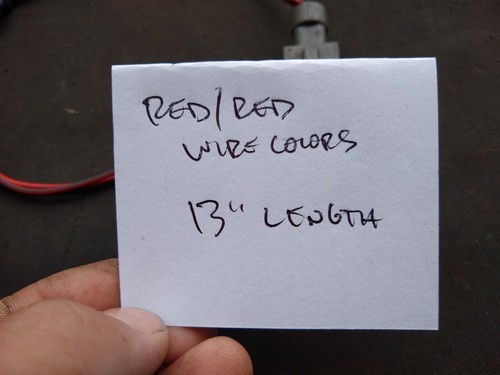 RED/RED
WIRE COLORS
13" LENGTH